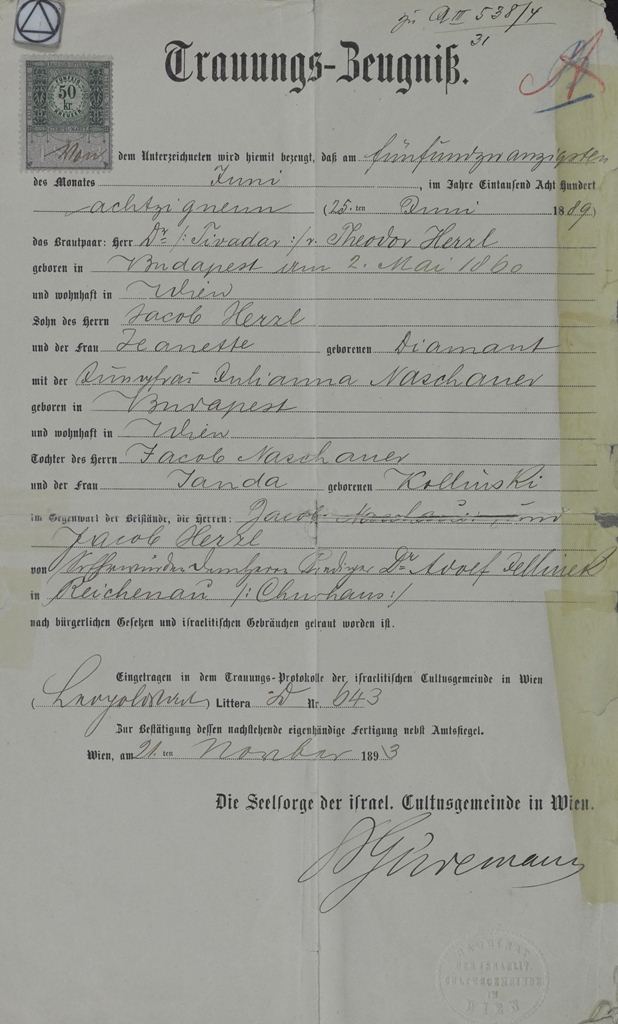 zu A III 538/4
31
Trauungs-Zeugniß.
50
kr.
Von dem Unterzeichneten wird hiemit bezeugt, daß am fünfundzwanzigsten
des Monates Juni, im Jahre Eintausend Acht Hundert
achtzigneun (25.ten Juni 1889.)
das Brautpaar: Herr Dr /: Tivadar :/ r. Theodor Herzl
geboren in Budapest am 2. Mai 1860
und wohnhaft in Wien
Sohn des Herrn Jacob Herzl
und der Frau Jeanette geborenen Diamant
mit der Jungfrau Julianna Naschauer
geboren in Budapest
und wohnhaft in Wien
Tochter des Herrn Jacob Naschauer
und der Frau Janda geborenen Kollinski
im Gegenwart der Beistände, die Herren: Jacob Naschauer und
Jacob Herzl
von Sr Ehrwürden dem Herrn Prediger Dr Adolf Jellinek
in Reichenau /: Churhaus :/
nach bürgerlichen Gesetzen und israelitischen Gebräuchen getraut worden ist.
Eingetragen in dem Trauungs-Protokolle der israelitischen Cultusgemeinde in Wien
(Leopoldstadt) Littera D Nr. 643
Zur Bestätigung dessen nachstehende eigenhändige Fertigung nebst Amtssiegel.
Wien, am 21.ten November 1893
Die Seelsorge der israel. Cultusgemeinde in Wien.
Güdemann